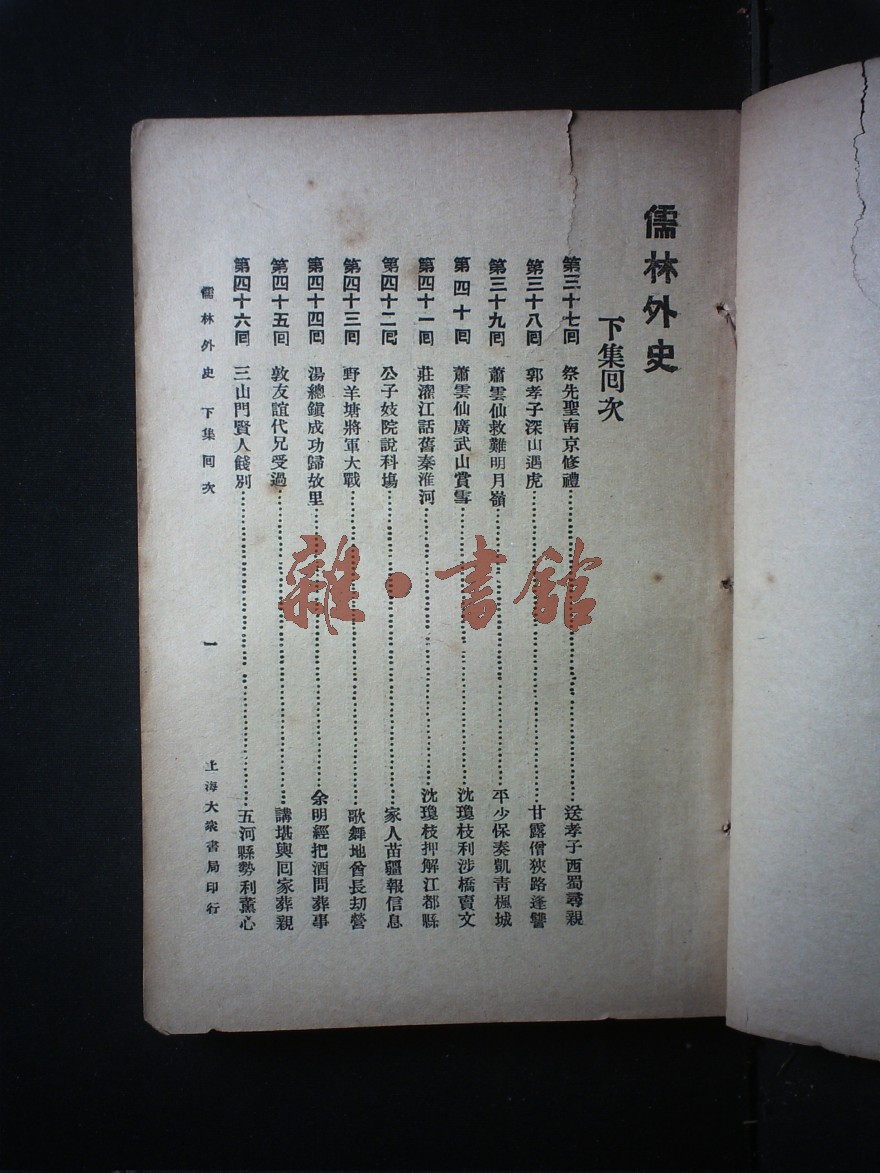 儒林外史
下集囘次
第三十七囘 祭先聖南京修禮……送孝子西蜀尋親
第三十八囘 郭孝子深山遇虎……甘露僧狹路逢讐
第三十九囘 蕭雲仙救難明月嶺……平少保奏凱靑楓城
第四十囘 蕭雲仙廣武山賞雪……沈瓊枝利涉橋賣文
第四十一囘 莊濯江話舊秦淮河……沈瓊枝押解江都縣
第四十二囘 公子妓院說科塲……家人苗疆報信息
第四十三囘 野羊塘將軍大戰……歌舞地酋長刧營
第四十四囘 湯總鎭成功歸故里……余明經把酒問葬事
第四十五囘 敦友誼代兄受過……講堪輿囘家葬親
第四十六囘 三山門賢人餞別……五河縣勢利薰心
儒林外史 下集囘次 一 上海大衆書局印行
雜·書館